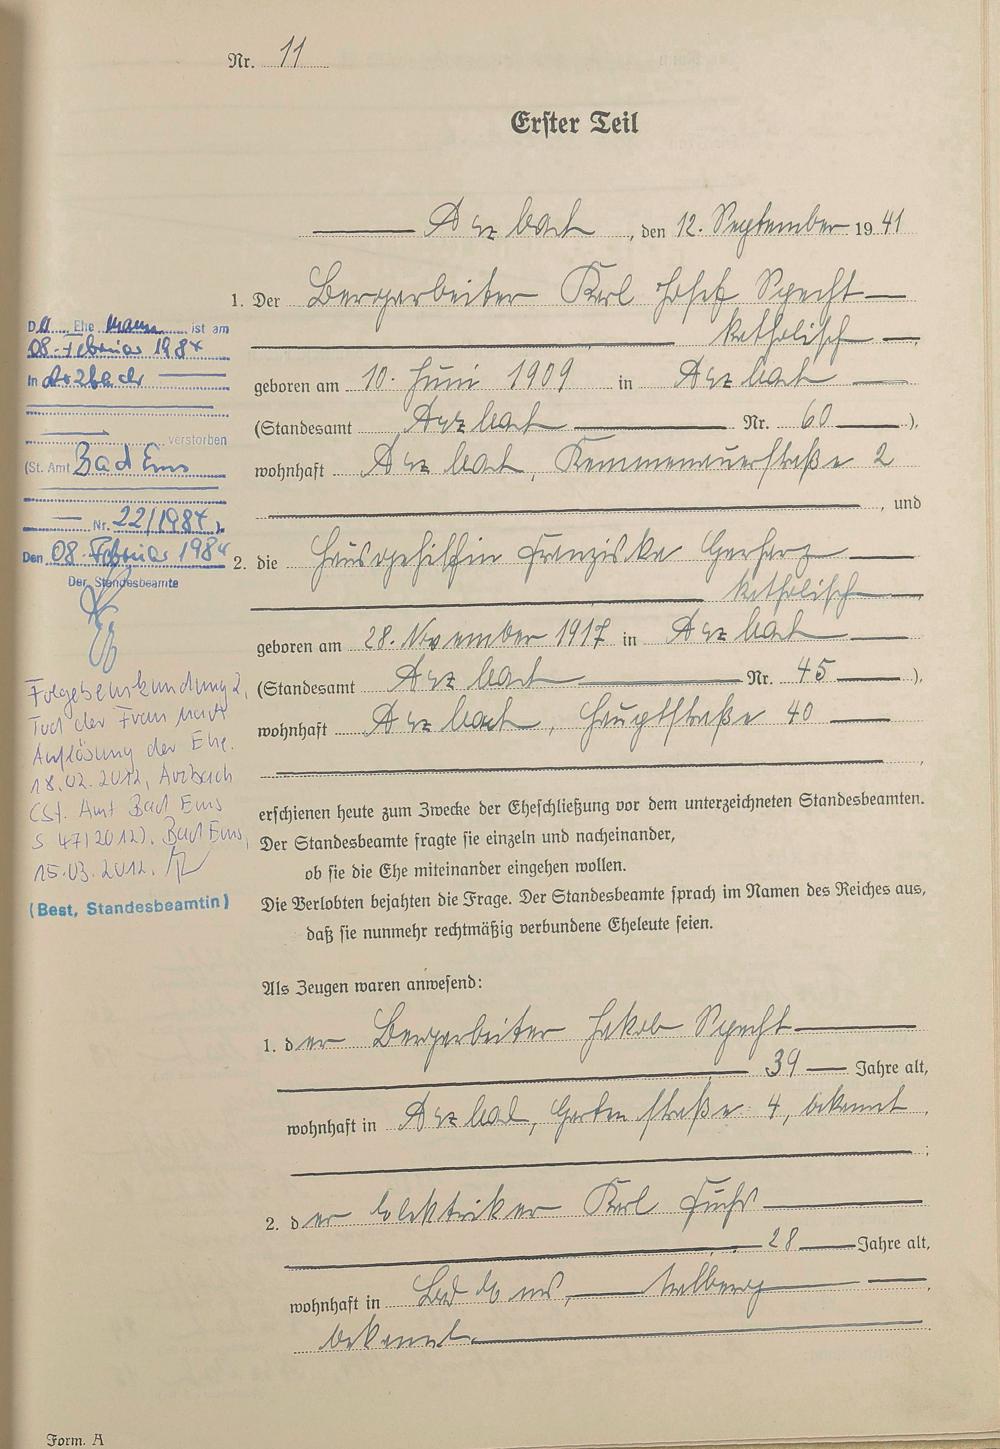 Nr. 11
Erster Teil
Arzbach, den 12. September 1941
1. Der Bergarbeiter Karl Josef Specht
katholisch
geboren am 10. Juni 1909 in Arzbach
(Standesamt Arzbach Nr. 60),
wohnhaft Arzbach, Kemmenauerstraße 2
, und
2. die Hausgehilfin Franziska Gerharz
katholisch
geboren am 28. November 1917 in Arzbach
(Standesamt Arzbach Nr. 45),
wohnhaft Arzbach, Hauptstraße 40
,
erschienen heute zum Zwecke der Eheschließung vor dem unterzeichneten Standesbeamten.
Der Standesbeamte fragte sie einzeln und nacheinander,
ob sie die Ehe miteinander eingehen wollen.
Die Verlobten bejahten die Frage. Der Standesbeamte sprach im Namen des Reiches aus,
daß sie nunmehr rechtmäßig verbundene Eheleute seien.
Als Zeugen waren anwesend:
1. der Bergarbeiter Jakob Specht
39 Jahre alt,
wohnhaft in Arzbach, Gartenstraße 4, bekannt
;
2. der Elektriker Karl Fuchs
28 Jahre alt,
wohnhaft in Bad Ems,
bekannt.
Form. A
D Ehemann ist am
08. Februar 1984
in Arzbach
verstorben
(St. Amt Bad Ems
Nr. 22/1984).
Den 08. Februar 1984
Der Standesbeamte
Folgebeurkundung 2,
Tod der Frau nach
Auflösung der Ehe.
18.02.2012, Arzbach
(St. Amt Bad Ems
S 47/2012). Bad Ems,
15.03.2012.
(Best, Standesbeamtin)